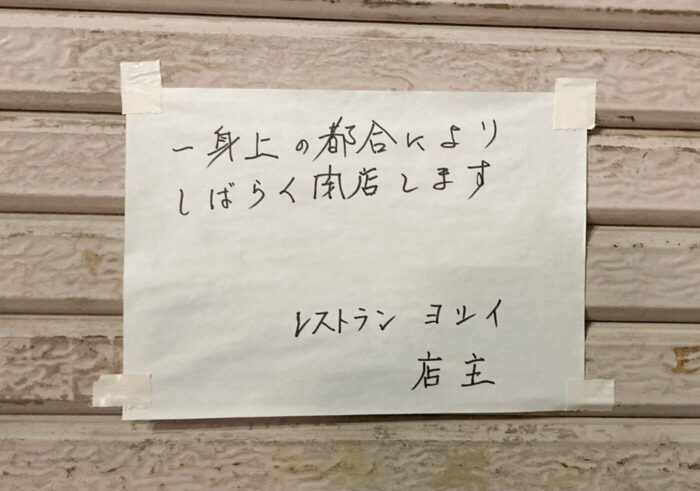 一身上の都合により
しばらく閉店します
レストラン ヨツイ
店主